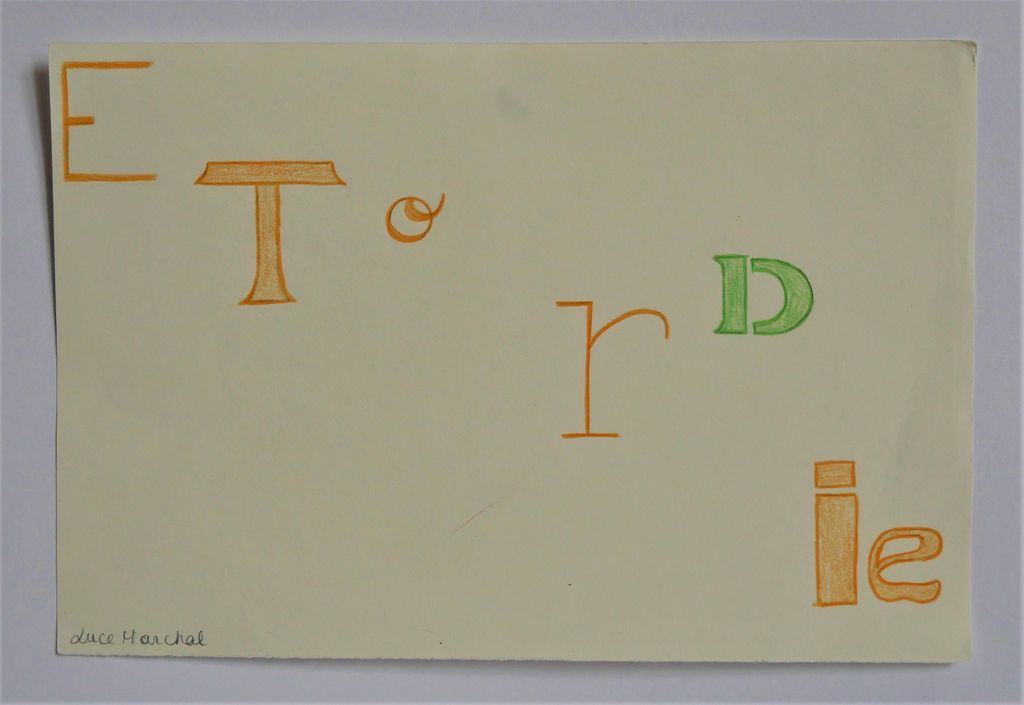 E T o r D ie
Luce Marchal